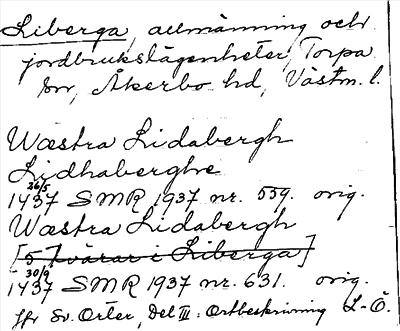 Liberga, allmänning och
jordbrukslägenheter, Torpa
sn, Åkerbo hd, Västm. l.
Wæstra Lidabergh
Lidhaberghe
26/5
1437 SMR 1937 nr. 559. orig.
Wæstra Lidabergh
[5 tvärar i Liberga]
30/9
1437 SMR 1937 nr. 631. orig.
Jfr Sv. Orter, Del III: Ortbeskrivning L-Ö.